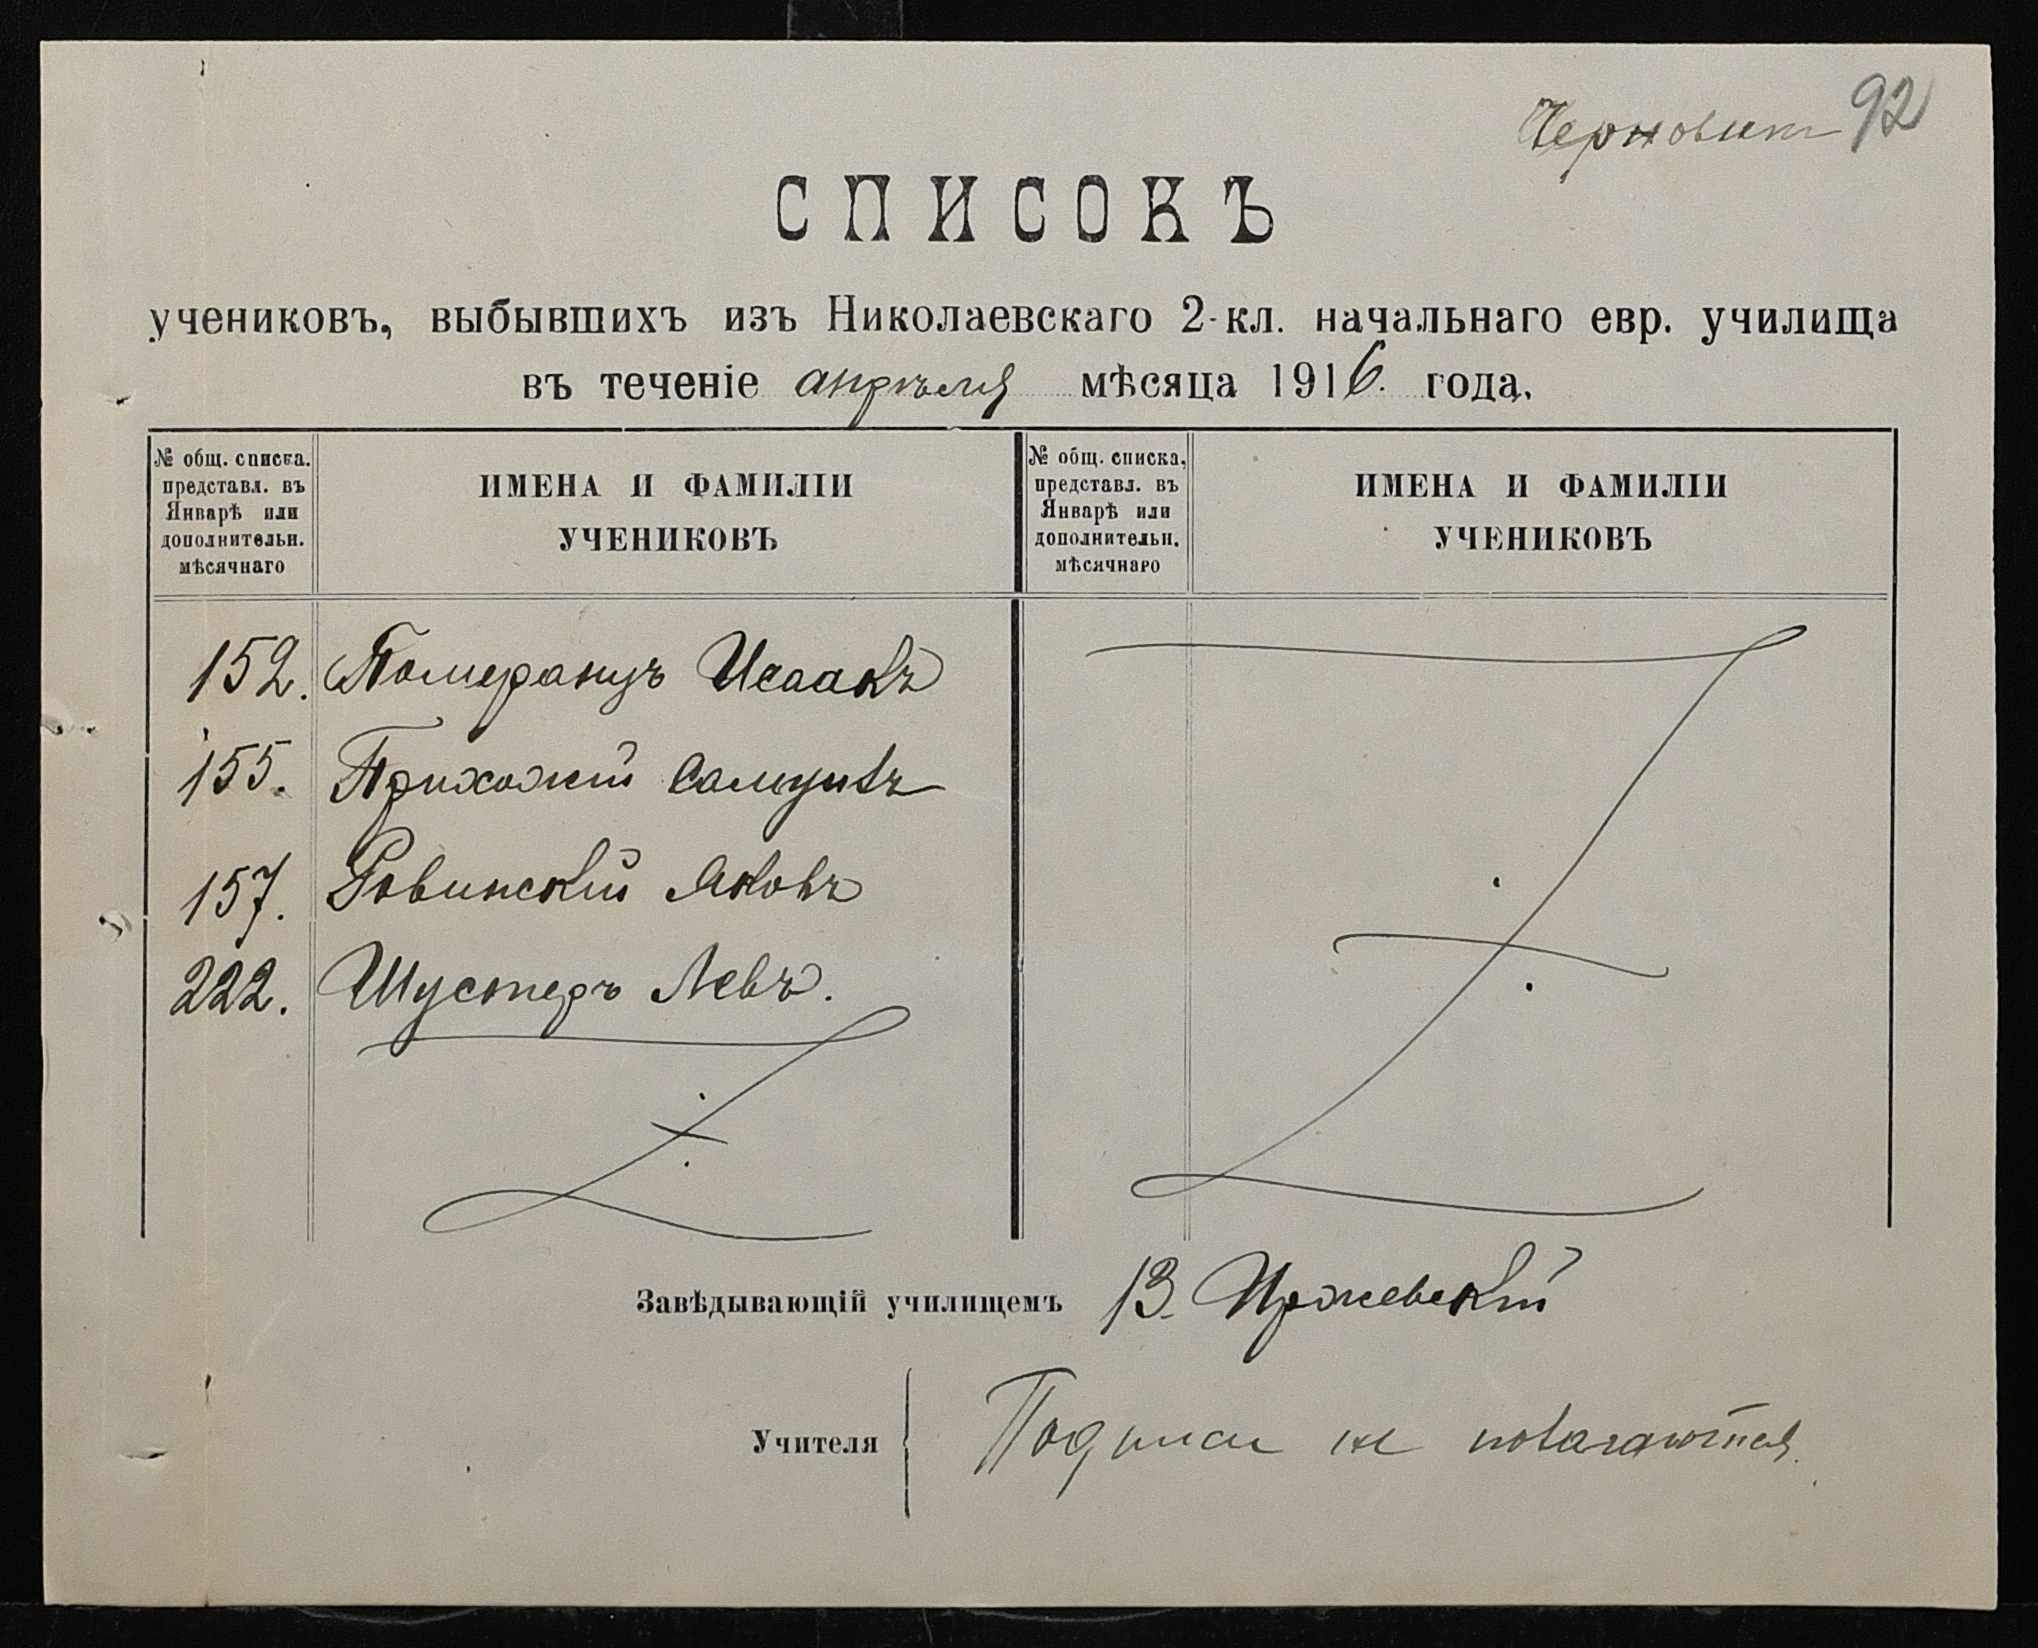 Черновикъ 92
СПИСОКЪ
учениковъ, выбывшихъ изъ Николаевскаго 2-кл. начальнаго евр. училища
въ теченіе апрѣля мѣсяца 1916. года.
№ общ. списка. представл. въ Январѣ или дополнительн. мѣсячнаго
ИМЕНА И ФАМИЛІИ УЧЕНИКОВЪ
№ общ. списка, представл. въ Январѣ или дополнительн. мѣсячнаго
ИМЕНА И ФАМИЛІИ УЧЕНИКОВЪ
152. Померанцъ Исаакъ
155. Прихожій Самуилъ
157. Ровинскій Яковъ
222. Шустеръ Левъ.
Завѣдывающій училищемъ В. Иржевскій
Учителя Подписи не полагаются.